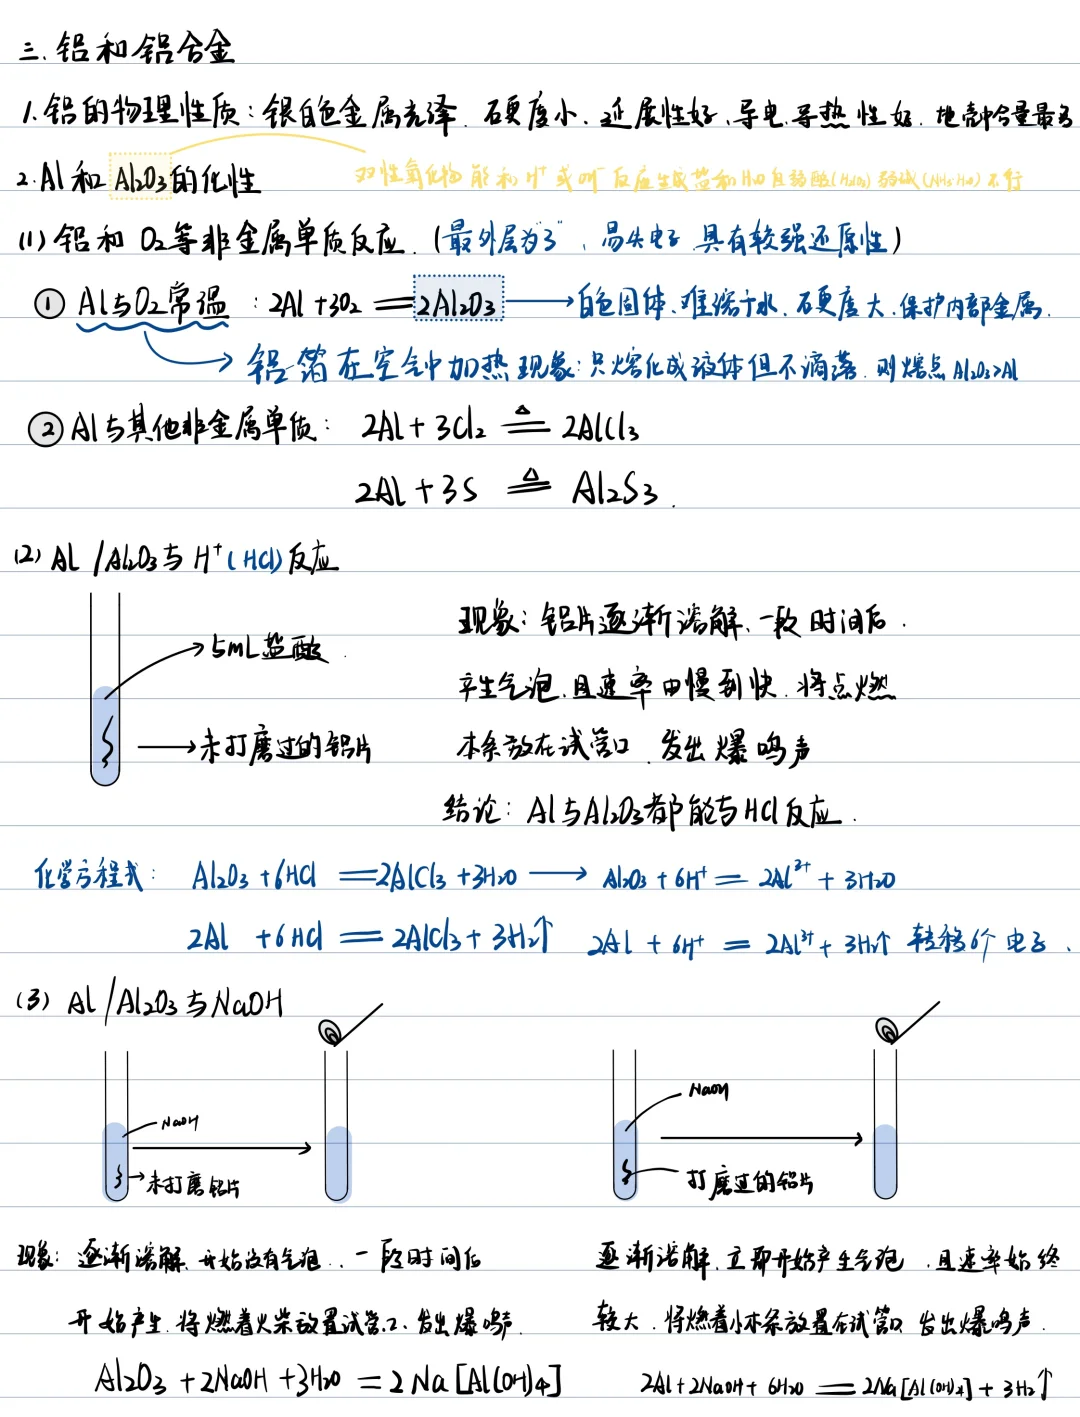 三.铝和铝合金
1.铝的物理性质:银白色金属光泽.硬度小、延展性好、导电.导热性好.地壳中含量最多
2.Al和Al₂O₃的化性
双性氧化物 能和H⁺或OH⁻反应生成盐和H₂O 且弱酸(H₂CO₃)弱碱(NH₃·H₂O)不行
(1)铝和O₂等非金属单质反应.(最外层为"3"、易失电子 具有较强还原性)
① Al与O₂常温:2Al+3O₂══2Al₂O₃→白色固体、难溶于水.硬度大.保护内部金属.
→铝箔在空气中加热现象:只熔化成液体但不滴落.则熔点Al₂O₃>Al
② Al与其他非金属单质: 2Al+3Cl₂ ≜ 2AlCl₃
2Al+3S ≜ Al₂S₃.
(2) Al/Al₂O₃与H⁺(HCl)反应
→5mL盐酸
→未打磨过的铝片
现象:铝片逐渐溶解、一段时间后.
产生气泡.且速率由慢到快.将点燃
木条放在试管口.发出爆鸣声
结论:Al与Al₂O₃都能与HCl反应.
化学方程式: Al₂O₃+6HCl══2AlCl₃+3H₂O→Al₂O₃+6H⁺══2Al³⁺+3H₂O
2Al+6HCl══2AlCl₃+3H₂↑ 2Al+6H⁺══2Al³⁺+3H₂↑ 转移6个电子.
(3) Al/Al₂O₃与NaOH
NaOH
→未打磨铝片
NaOH
打磨过的铝片
现象:逐渐溶解.开始没有气泡..一段时间后
开始产生.将燃着火柴放置试管口、发出爆鸣声
Al₂O₃+2NaOH+3H₂O=2Na[Al(OH)₄]
逐渐溶解.立即开始产生气泡.且速率始终
较大.将燃着小木条放置在试管口 发出爆鸣声.
2Al+2NaOH+6H₂O══2Na[Al(OH)₄]+3H₂↑